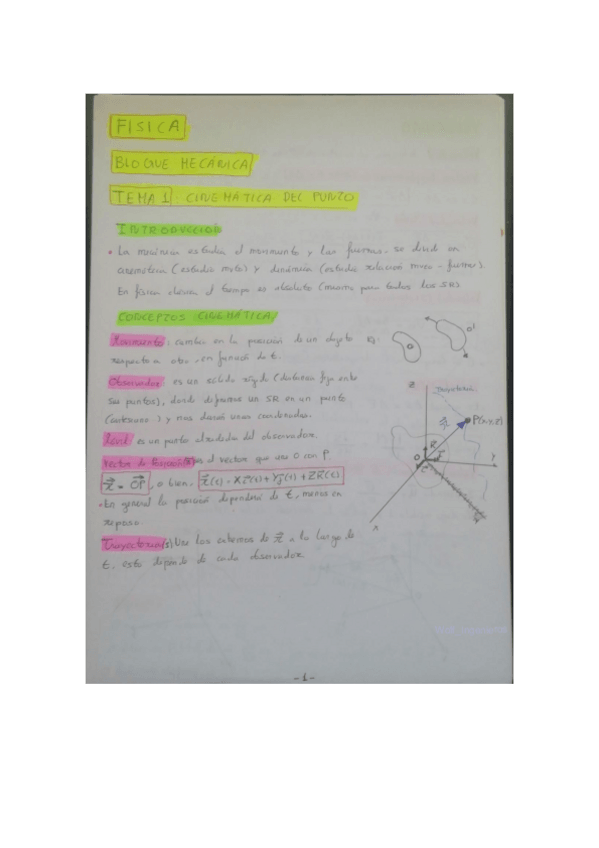 FISICA
BLOQUE MECÁNICA
TEMA 1 · CINEMÁTICA DEL PUNTO
INTRODUCCIÓN
• La mecánica estudia el movimiento y las fuerzas. se divide en
cinemática (estudia mvto) y dinámica (estudia relación mvto - fuerzas).
En física clásica el tiempo es absoluto (mismo para todos los SR)
CONCEPTOS CINEMÁTICA.
Movimiento: cambio en la posición de un objeto
respecto a otro, en función de t.
O
O'
Observador: es un sólido rígido (distancia fija entre
sus puntos), donde definimos un SR en un punto
y nos dará unas coordenadas.
Móvil es un punto alrededor del observador.
Vector de Posición es el vector que une O con P
r = OP, o bien, r(t) = Xi(t) + Yj(t) + ZK(t)
• En general la posición dependerá de t, menos en
reposo.
Trayectoria(s) Une los extremos de r a lo largo de
t, esto depende de cada observador.
Z
Trayectoria
P(x,y,z)
r
K
O
j
i
Y
X
-1-